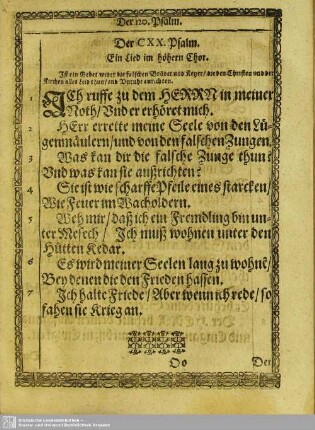 Der 120. Psalm.
Der CXX. Psalm.
Ein Lied im höhern Chor.
Ist ein Gebet wider die falschen Brüder und Ketzer / die den Christen und der
Kirchen alles Leid thun / und Unruhe anrichten.
1 ICh ruffe zu dem HERRN in meiner
Noth / Und er erhöret mich.
2 HErr errette meine Seele von den Lü-
genmäulern / und von den falschen Zungen.
3 Was kan dir die falsche Zunge thun?
Und was kan sie außrichten?
4 Sie ist wie scharffe Pfeile eines starcken /
Wie Feuer im Wacholdern.
5 Weh mir / daß ich ein Fremdling bin un-
ter Mesech / Ich muß wohnen unter den
Hütten Kedar.
6 Es wird meiner Seelen lang zu wohnẽ /
Bey denen die den Frieden hassen.
7 Ich halte Friede / Aber wenn ich rede / so
fahen sie Krieg an.
Oo Der